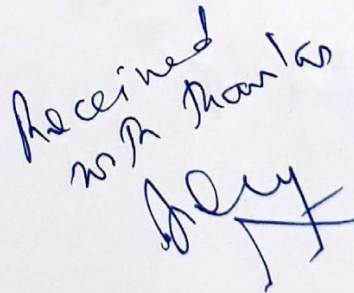 Received
with thanks